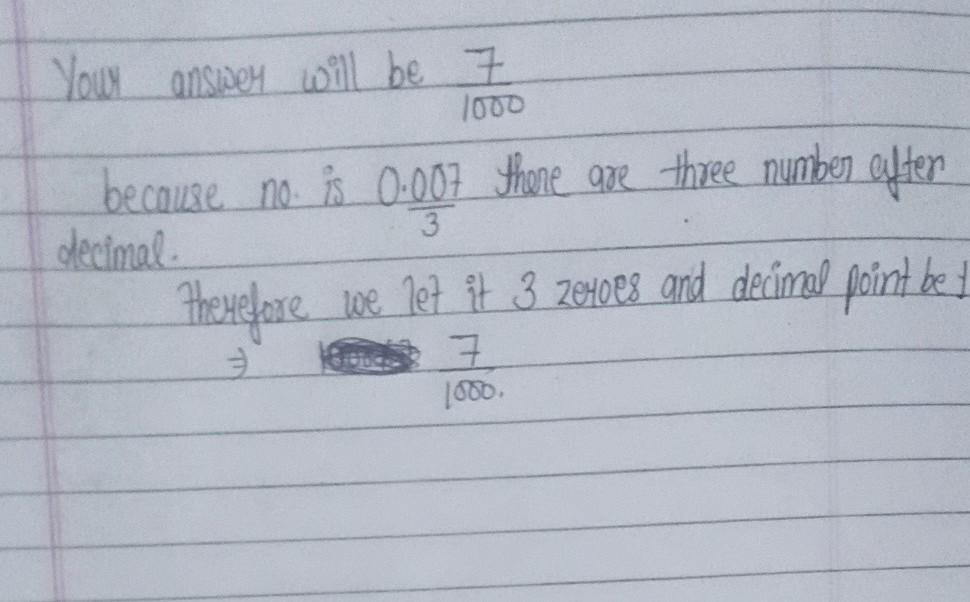 Your answer will be 7/1000
because no. is 0.007 there are three number after
3
decimal.
Therefore we let it 3 zeroes and decimal point be 1
⇒ 7/1000.